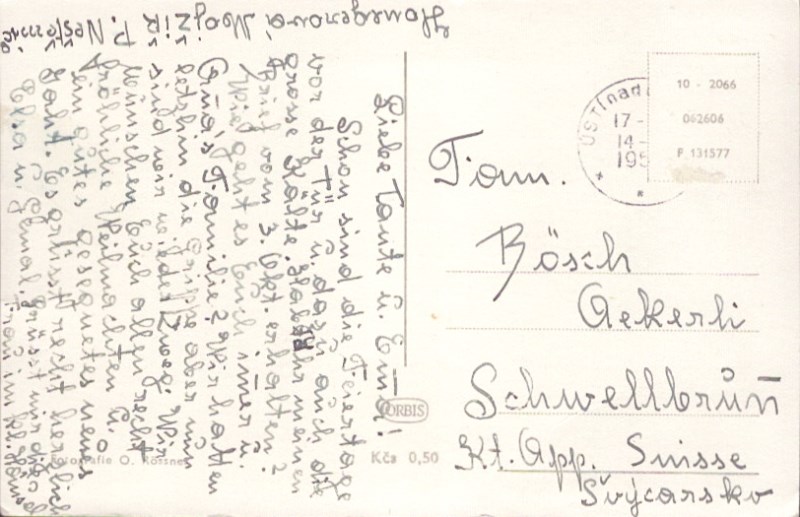 Liebe Tante u. Erna!
Schon sind die Feiertage
vor der Tür u. dazu auch die
grosse Kälte. Habt ihr meinen
Brief vom 3. Okt. erhalten?
Wie geht es Euch immer u.
Erna's Familie? Wir hatten
letzhin die Grippe aber nun
sind wir wieder zweg. Wir
wünschen Euch allen recht
fröhliche Weihnachten u.
ein gutes gesegnetes neues
Jahr. Es grüsst recht herzlich
Elsa u. Gemal.
Honegerova Mojžíř P. Neštěmice
Fam.
Bösch
Aekerli
Schwellbrun̄
Kt. App. Suisse
Švýcarsko
ÚSTÍ nad
17 -
14 -
195
10 - 2066
062606
P 131577
ORBIS
Kčs 0,50
Fotografie O. Rössner